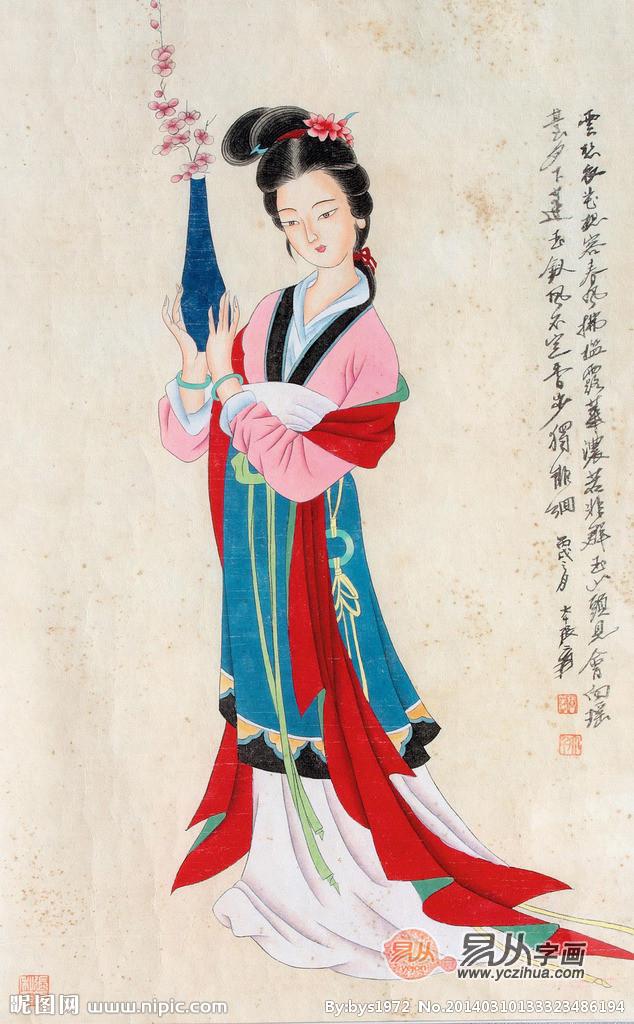 雲想衣花想容春風拂檻露華濃若非群玉山頭見會向瑤
臺夕下蓬玉釵風不定香步獨徘徊 丙戌 大千張爰
易从
yczihua
易从字画
www.yczihua.com
昵图网 www.nipic.com
By:bys1972 No.20140310133323486194